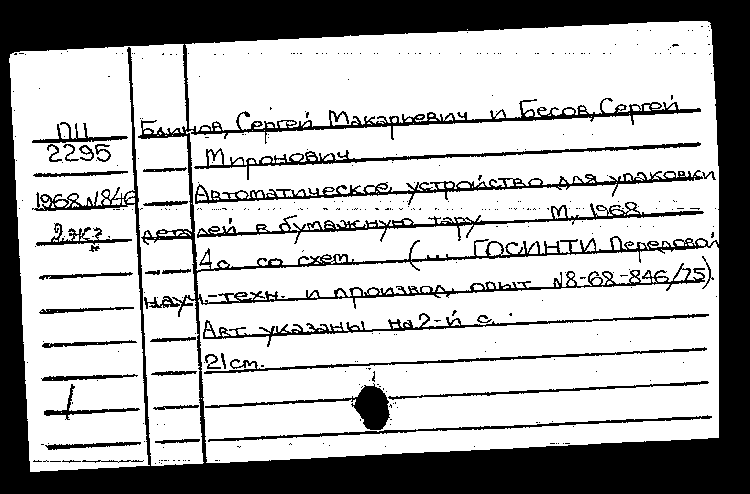 П11 Блинов, Сергей Макарьевич и Бесов, Сергей
2295 Миронович.
1968 N846 Автоматическое устройство для упаковки
2 экз. деталей в бумажную тару. М., 1968.
4 с. со схем. (... ГОСИНТИ. Передовой
науч.-техн. и производ. опыт N8-68-846/75).
Авт. указаны на 2-й с.
21 см.